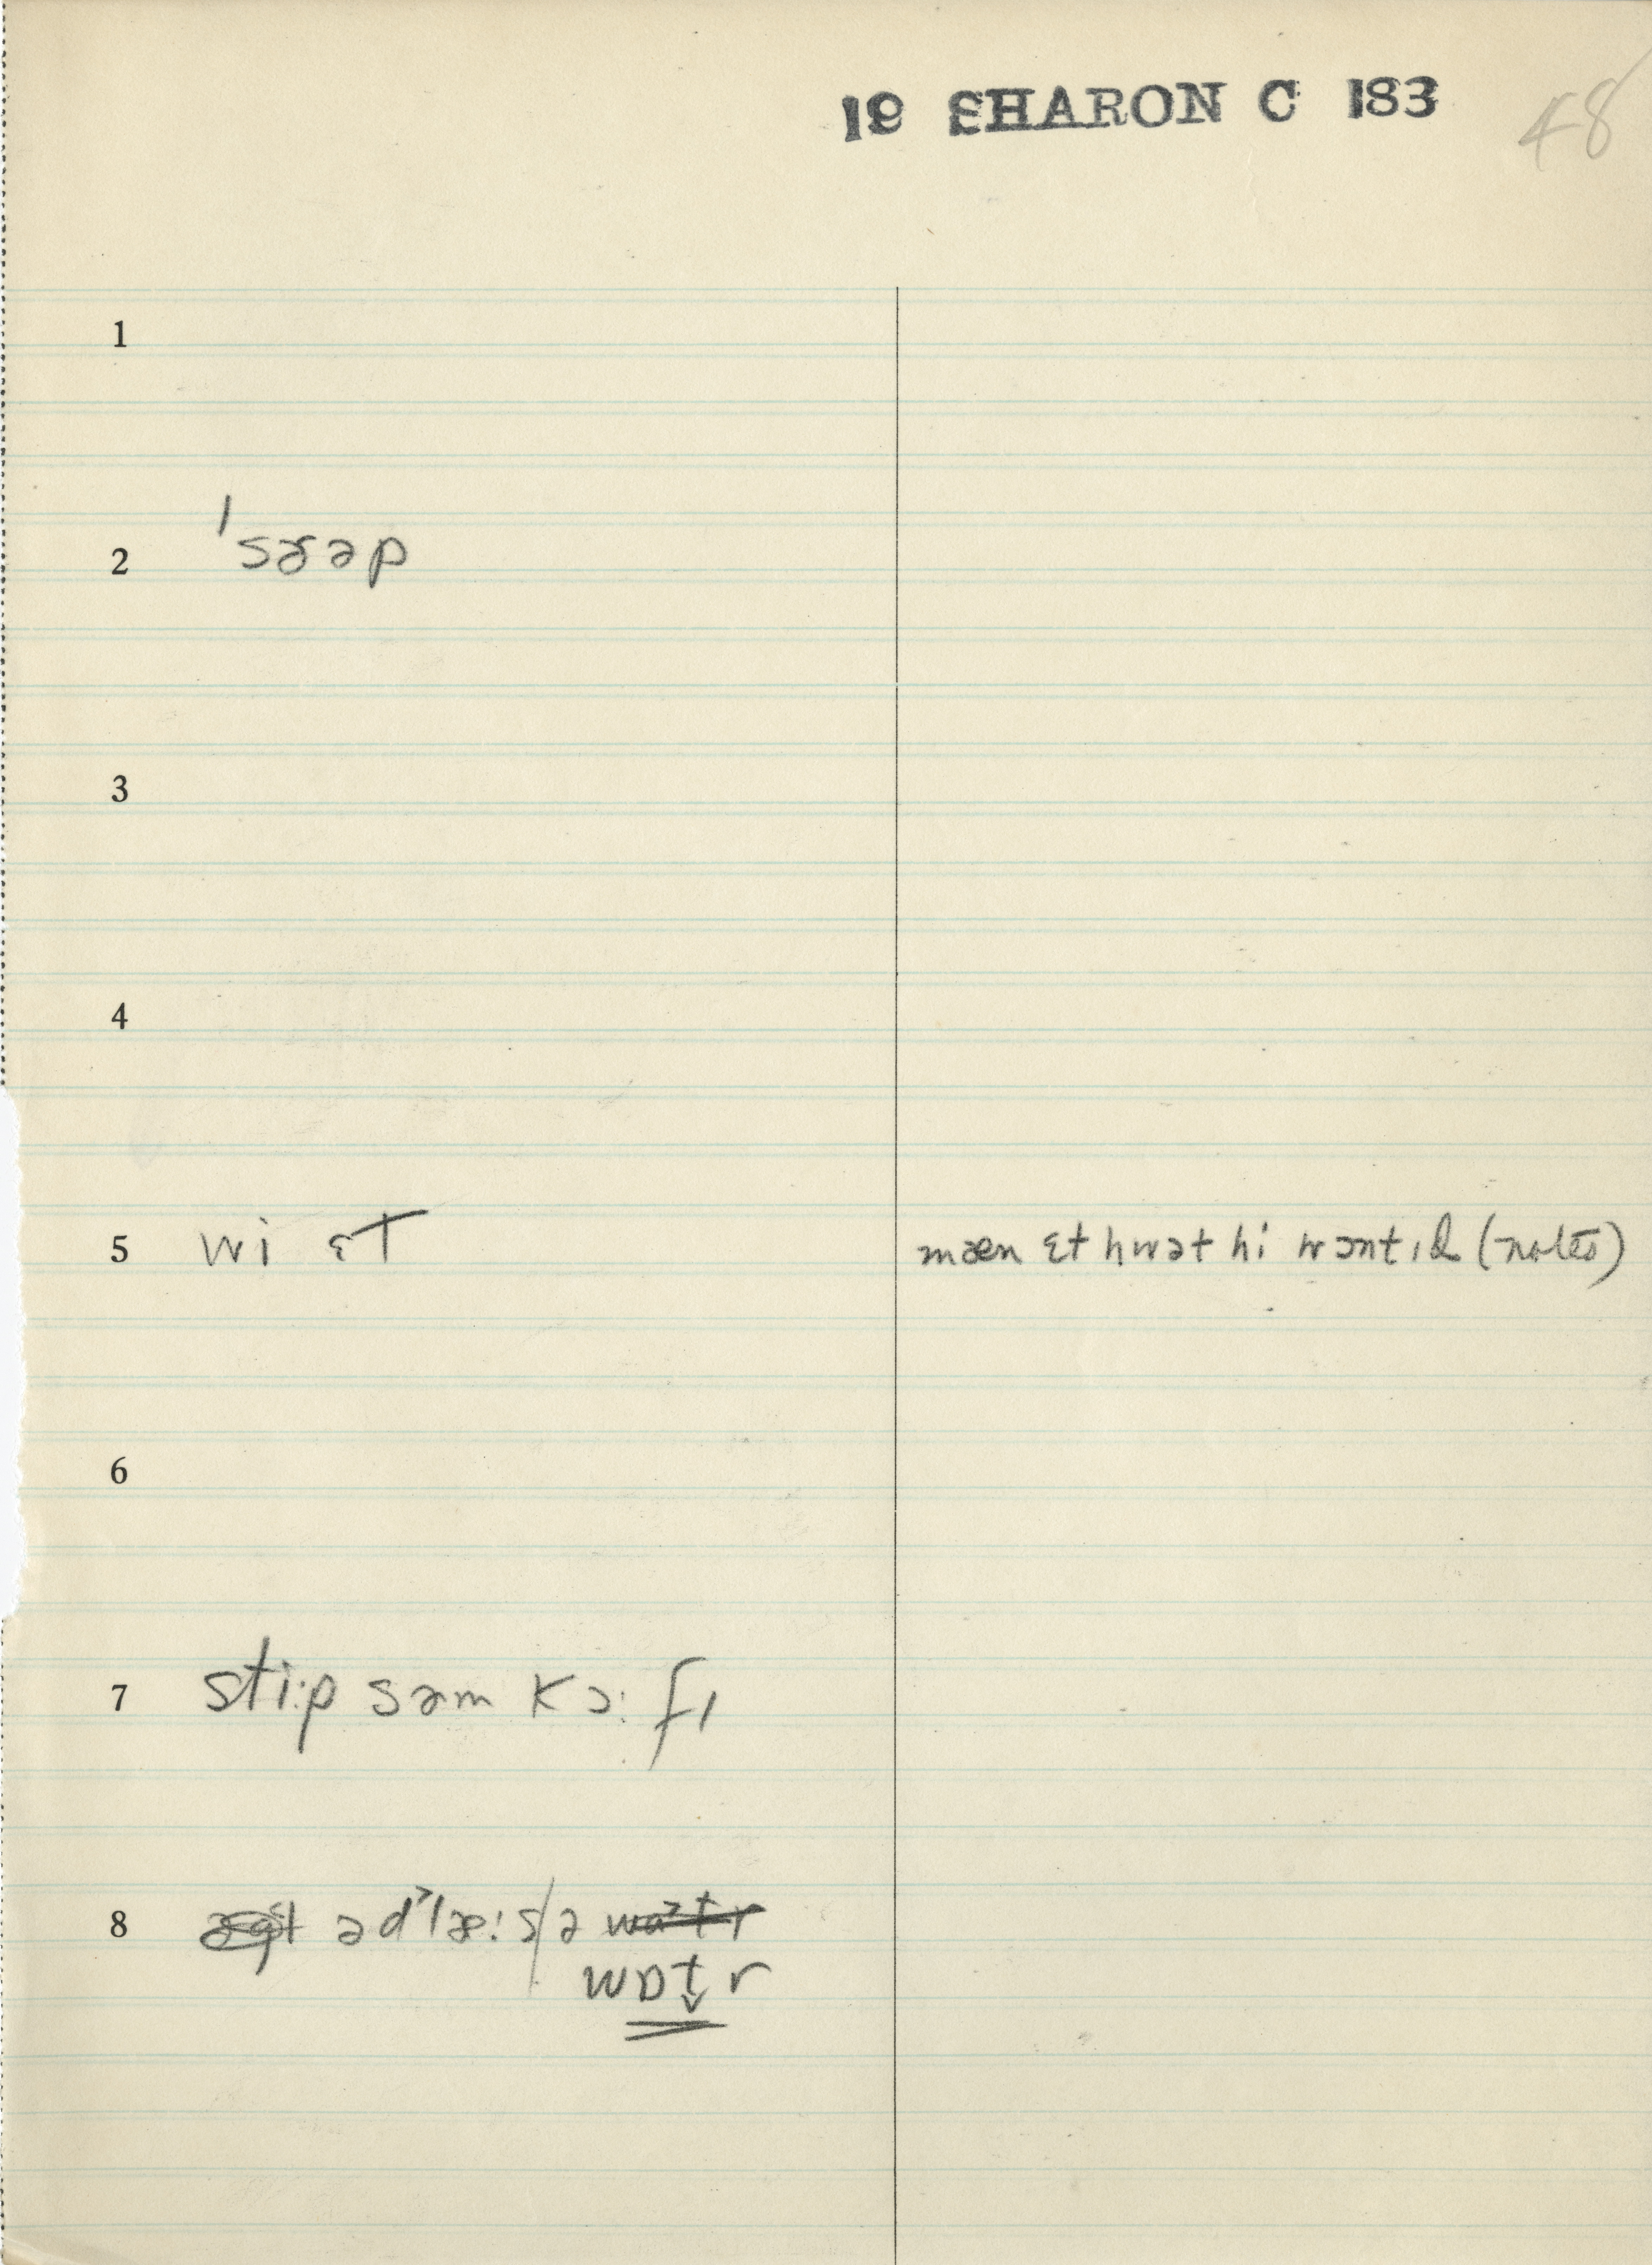 19 SHARON C 183 48
1
2 'sɚəp
3
4
5 wi ɛt mæn ɛt hwət hi wɔntɪd (notes)
6
7 sti:p səm kɔ: fɪ
8 ə d'læ:s/ə watr
wɒtr